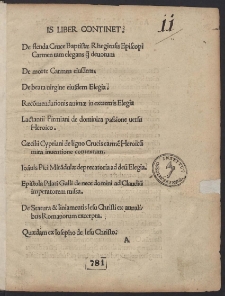 IS LIBER CONTINET.
ii
De flenda Cruce Baptistæ Rhegiensis Episcopi
Carmen tam elegans q̃ devotum
De morte Carmen eiusdem
De beata virgine eiusdem Elegia
in extremis Elegia
Lactantii Firmiani de dominica passione versu
Heroico.
Cecilii Cypriani de ligno Crucis carmẽ Heroicũ
Ioãnis Pici Mirãdulæ deprecatoria ad deũ Elegia.
Epistola Pilati Gulli de nece domini ad Claudiũ
imperatorem missa.
De Statura & liniamentis Iesu Christi ex annali
bus Romanorum excerpta.
Quædam ex Iosepho de Iesu Christo.
A
781